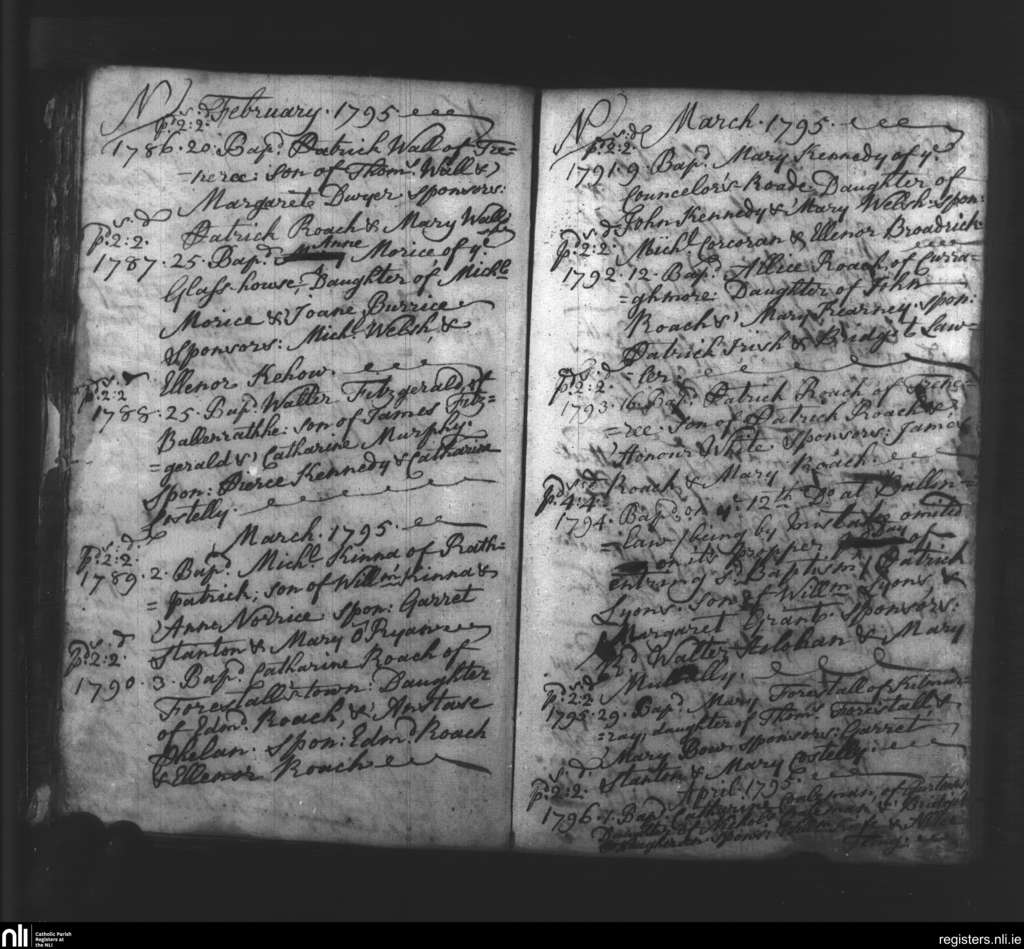 N February. 1795
s. d
pd 2:2.
1786. 20. Bapd. Patrick Wall of Tre=
=nerce: son of Thoms. Wall &
Margarete Dwyer Sponsors:
s. d
pd. 2:2. Patrick Roach & Mary Wall
1787. 25. Bapd. Anne Morice of ye.
Glass-house, Daughter of Michl.
Morice & Joane Burrice
Sponsors: Michl. Welsh, &
Ellenor Kehow.
s. d
pd. 2:2
1788. 25. Bapd. Walter Fitzgerald of
Ballenrathke: son of James Fitz=
=gerald & Catharine Murphy.
Spon: Pierce Kennedy & Catharine
Costelly.
March. 1795.
s. d
pd. 2:2.
1789. 2. Bapd. Michl. Kinna of Rath=
=patrick; son of Willm. Kinna &
Anne Nodrice Spon: Garret
Stanton & Mary O Ryan
s. d
pd. 2:2.
1790. 3. Bapd. Catharine Roach of
Forestall's-town: Daughter
of Edmd. Roach, & Anstase
Phelan. Spon: Edmd. Roach
& Ellenor Roach
N March. 1795.
s. d
pd. 2:2.
1791. 9. Bapd. Mary Kennedy of ye.
Councelor's Roade Daughter of
John Kennedy & Mary Welsh: Spon:
s. d
pd. 2:2. Michl. Corcoran & Ellenor Broadrick
1792. 12. Bapd. Allice Roach, of Curra=
=ghmore: Daughter of John
Roach & Mary Kearney: spon:
Patrick Irish & Bridget Law=
=ler:
s. d
pd. 2:2.
1793. 16. Bapd. Patrick Roach of
Son of Patrick Roach &
Honour White Sponsors: James
Roach & Mary Roach.
s. d
pd. 4:4
1794. Bapd. on ye. 12th. Do. at Ballin=
=law (being by omited
its propper of
entring sd. Baptism) Patrick
Lyons. son of Willm. Lyons, &
Margaret Grant. Sponsors:
Rd. Walter Holohan & Mary
Mullally.
s. d
pd. 2:2
1795. 29. Bapd. Mary Forestall of Kilmur=
=ray; daughter of Thoms. Forestall &
Mary Bow: sponsors: Garret
Stanton & Mary Costelly:
s. d
pd. 2:2. April. 1795.
1796. 1. Bapd. Catharine of
Daughter of & Bridget
Sponsors
nli Catholic Parish
Registers at
the NLI
registers.nli.ie